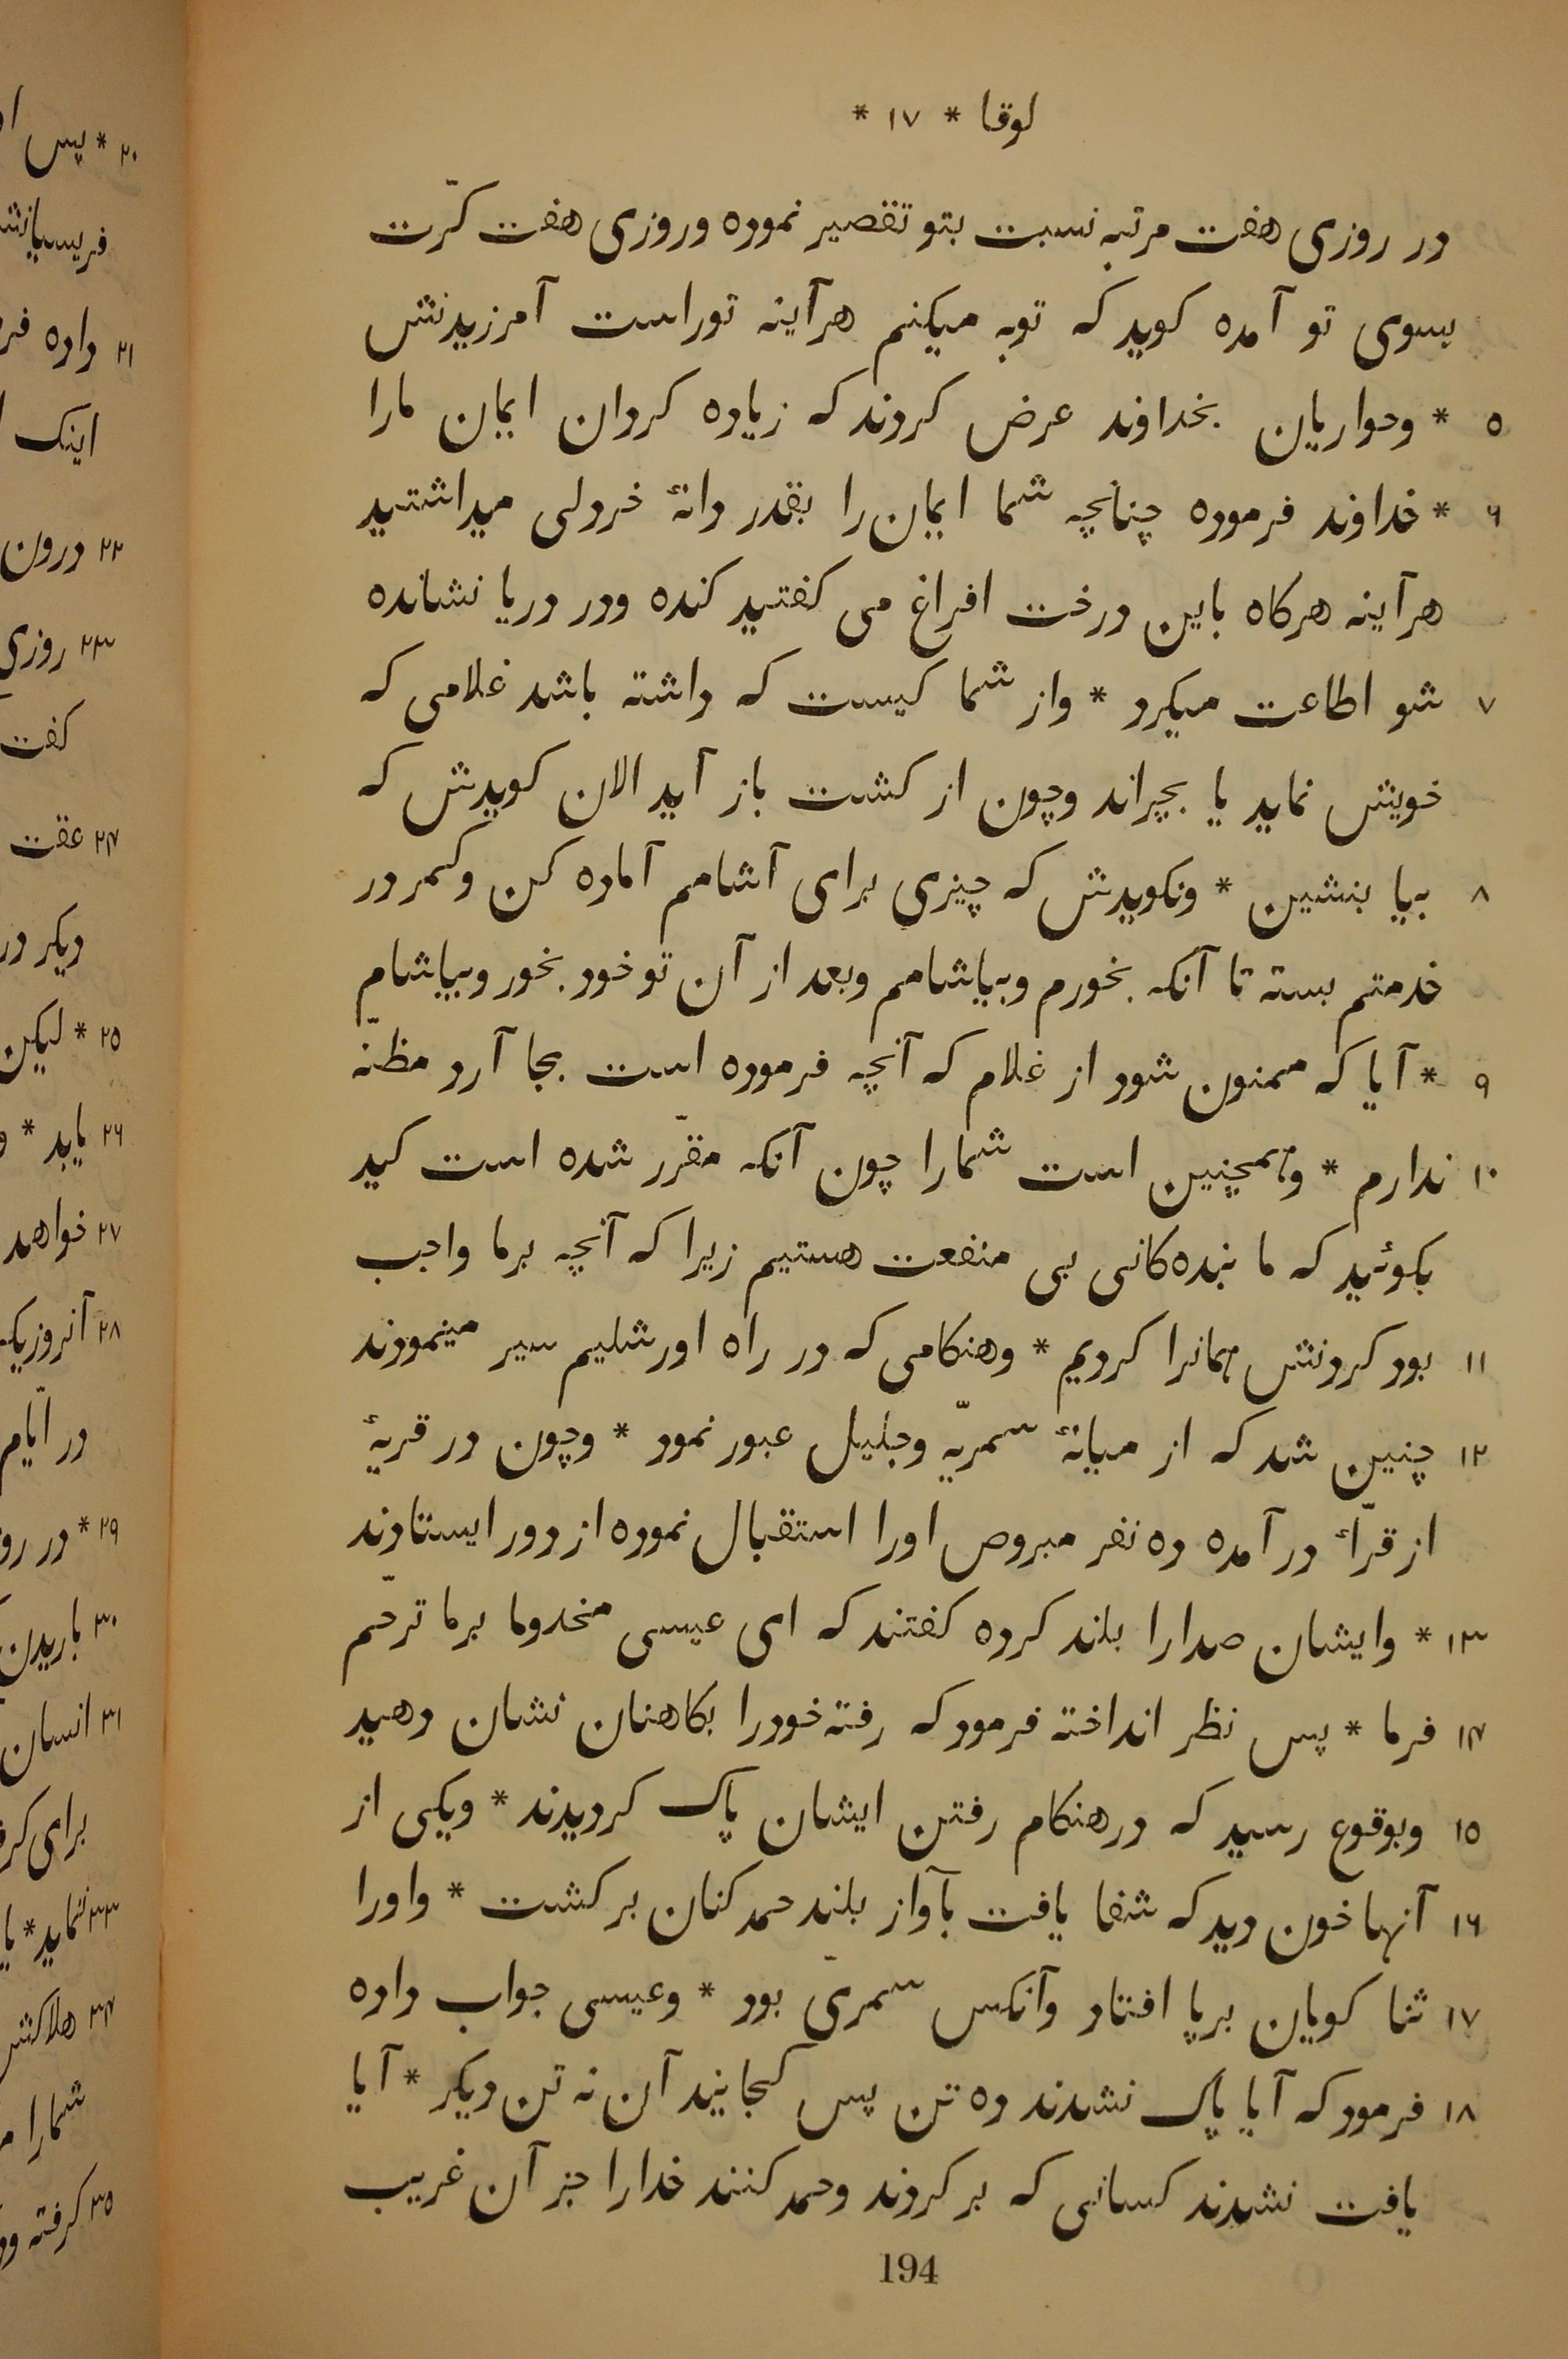 لوقا * ۱۷ *
در روزی هفت مرتبه نسبت بتو تقصیر نموده وروزی هفت کرّت
بسوی تو آمده کوید که توبه میکنم هرآینه توراست آمرزیدنش
۵ * وحواریان بخداوند عرض کردند که زیاده کردان ایمان مارا
۶ * خداوند فرموده چنانچه شما ایمان را بقدر دانهٔ خردلی میداشتید
هرآینه هرکاه باین درخت افراغ می کفتید کنده ودر دریا نشانده
۷ شو اطاعت میکرد * واز شما کیست که داشته باشد غلامی که
خویش نماید یا بچراند وچون از کشت باز آید الان کویدش که
۸ بیا بنشین * ونکویدش که چیزی برای آشامم آماده کن وکمر در
خدمتم بسته تا آنکه بخورم وبیاشامم وبعد از آن تو خود بخور وبیاشام
۹ * آیا که ممنون شود از غلام که آنچه فرموده است بجا آرد مظنّه
۱۰ ندارم * وهمچنین است شمارا چون آنکه مقرّر شده است کید
بکوئید که ما بنده‌کانی بی منفعت هستیم زیرا که آنچه برما واجب
۱۱ بود کردنش همانرا کردیم * وهنکامی که در راه اورشلیم سیر مینمودند
۱۲ چنین شد که از میانهٔ سمریّه وجلیل عبور نمود * وچون در قریهٔ
از قرّاٴ در آمده ده نفر مبروص اورا استقبال نموده از دور ایستادند
۱۳ * وایشان صدارا بلند کرده کفتند که ای عیسی مخدوما برما ترحّم
۱۴ فرما * پس نظر انداخته فرمود که رفته خودرا بکاهنان نشان دهید
۱۵ وبوقوع رسید که درهنکام رفتن ایشان پاک کردیدند * ویکی از
۱۶ آنها خون دید که شفا یافت بآواز بلند حمد کنان بر کشت * واورا
۱۷ ثنا کویان برپا افتاد وآنکس سمریّ بود * وعیسی جواب داده
۱۸ فرمود که آیا پاک نشدند ده تن پس کجایند آن نه تن دیکر * آیا
یافت نشدند کسانی که بر کردند وحمد کنند خدارا جز آن غریب
194
۲۰ * پس
۲۱ داده
اینک
۲۲ درون
۲۳ روزی
کفت
۲۴
دیکر در
۲۵ * لیکن
۲۶ یابد *
۲۷ خواهد
۲۸ آنروزیکه
در ایّام
۲۹ * در
۳۰ باریدن
۳۱ انسان
برای
۳۳ نماید * یا
۳۴
شمارا
۳۵ کرفته